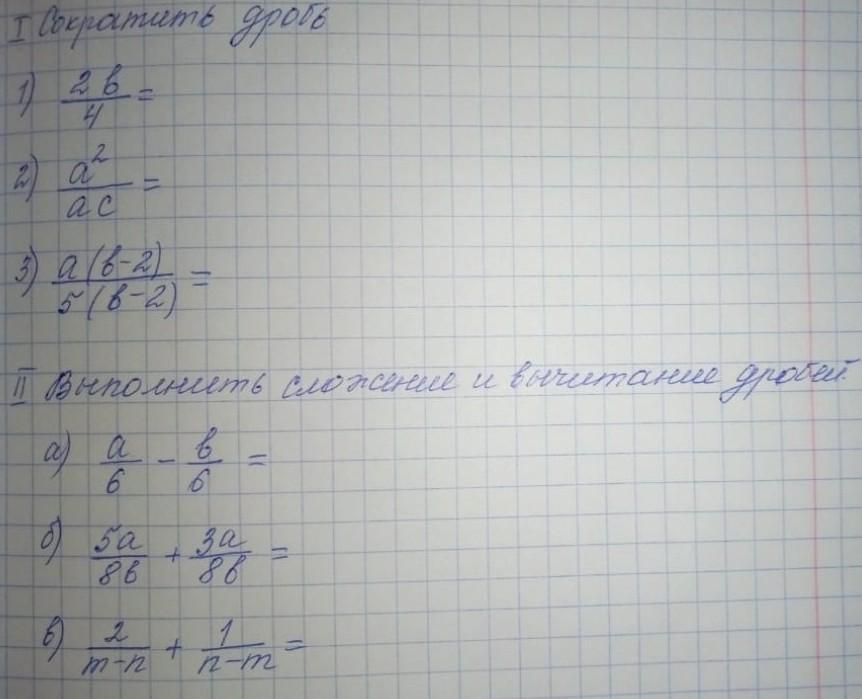 I Сократить дробь
1) 2в/4 =
2) a²/ac =
3) a(в-2)/5(в-2) =
II Выполнить сложение и вычитание дробей.
а) a/6 - в/6 =
б) 5a/8в + 3a/8в =
в) 2/m-n + 1/n-m =